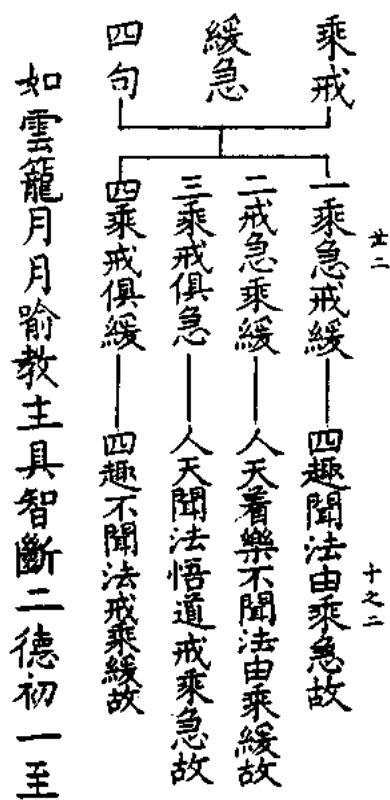 乘戒
緩急
四句
廿二
十之二
一乘急戒緩 四趣聞法由乘急故
二戒急乘緩 人天着樂不聞法由乘緩故
三乘戒俱急 人天聞法悟道戒乘急故
四乘戒俱緩 四趣不聞法戒乘緩故
如雲籠月月喻教主具智斷二德初一至